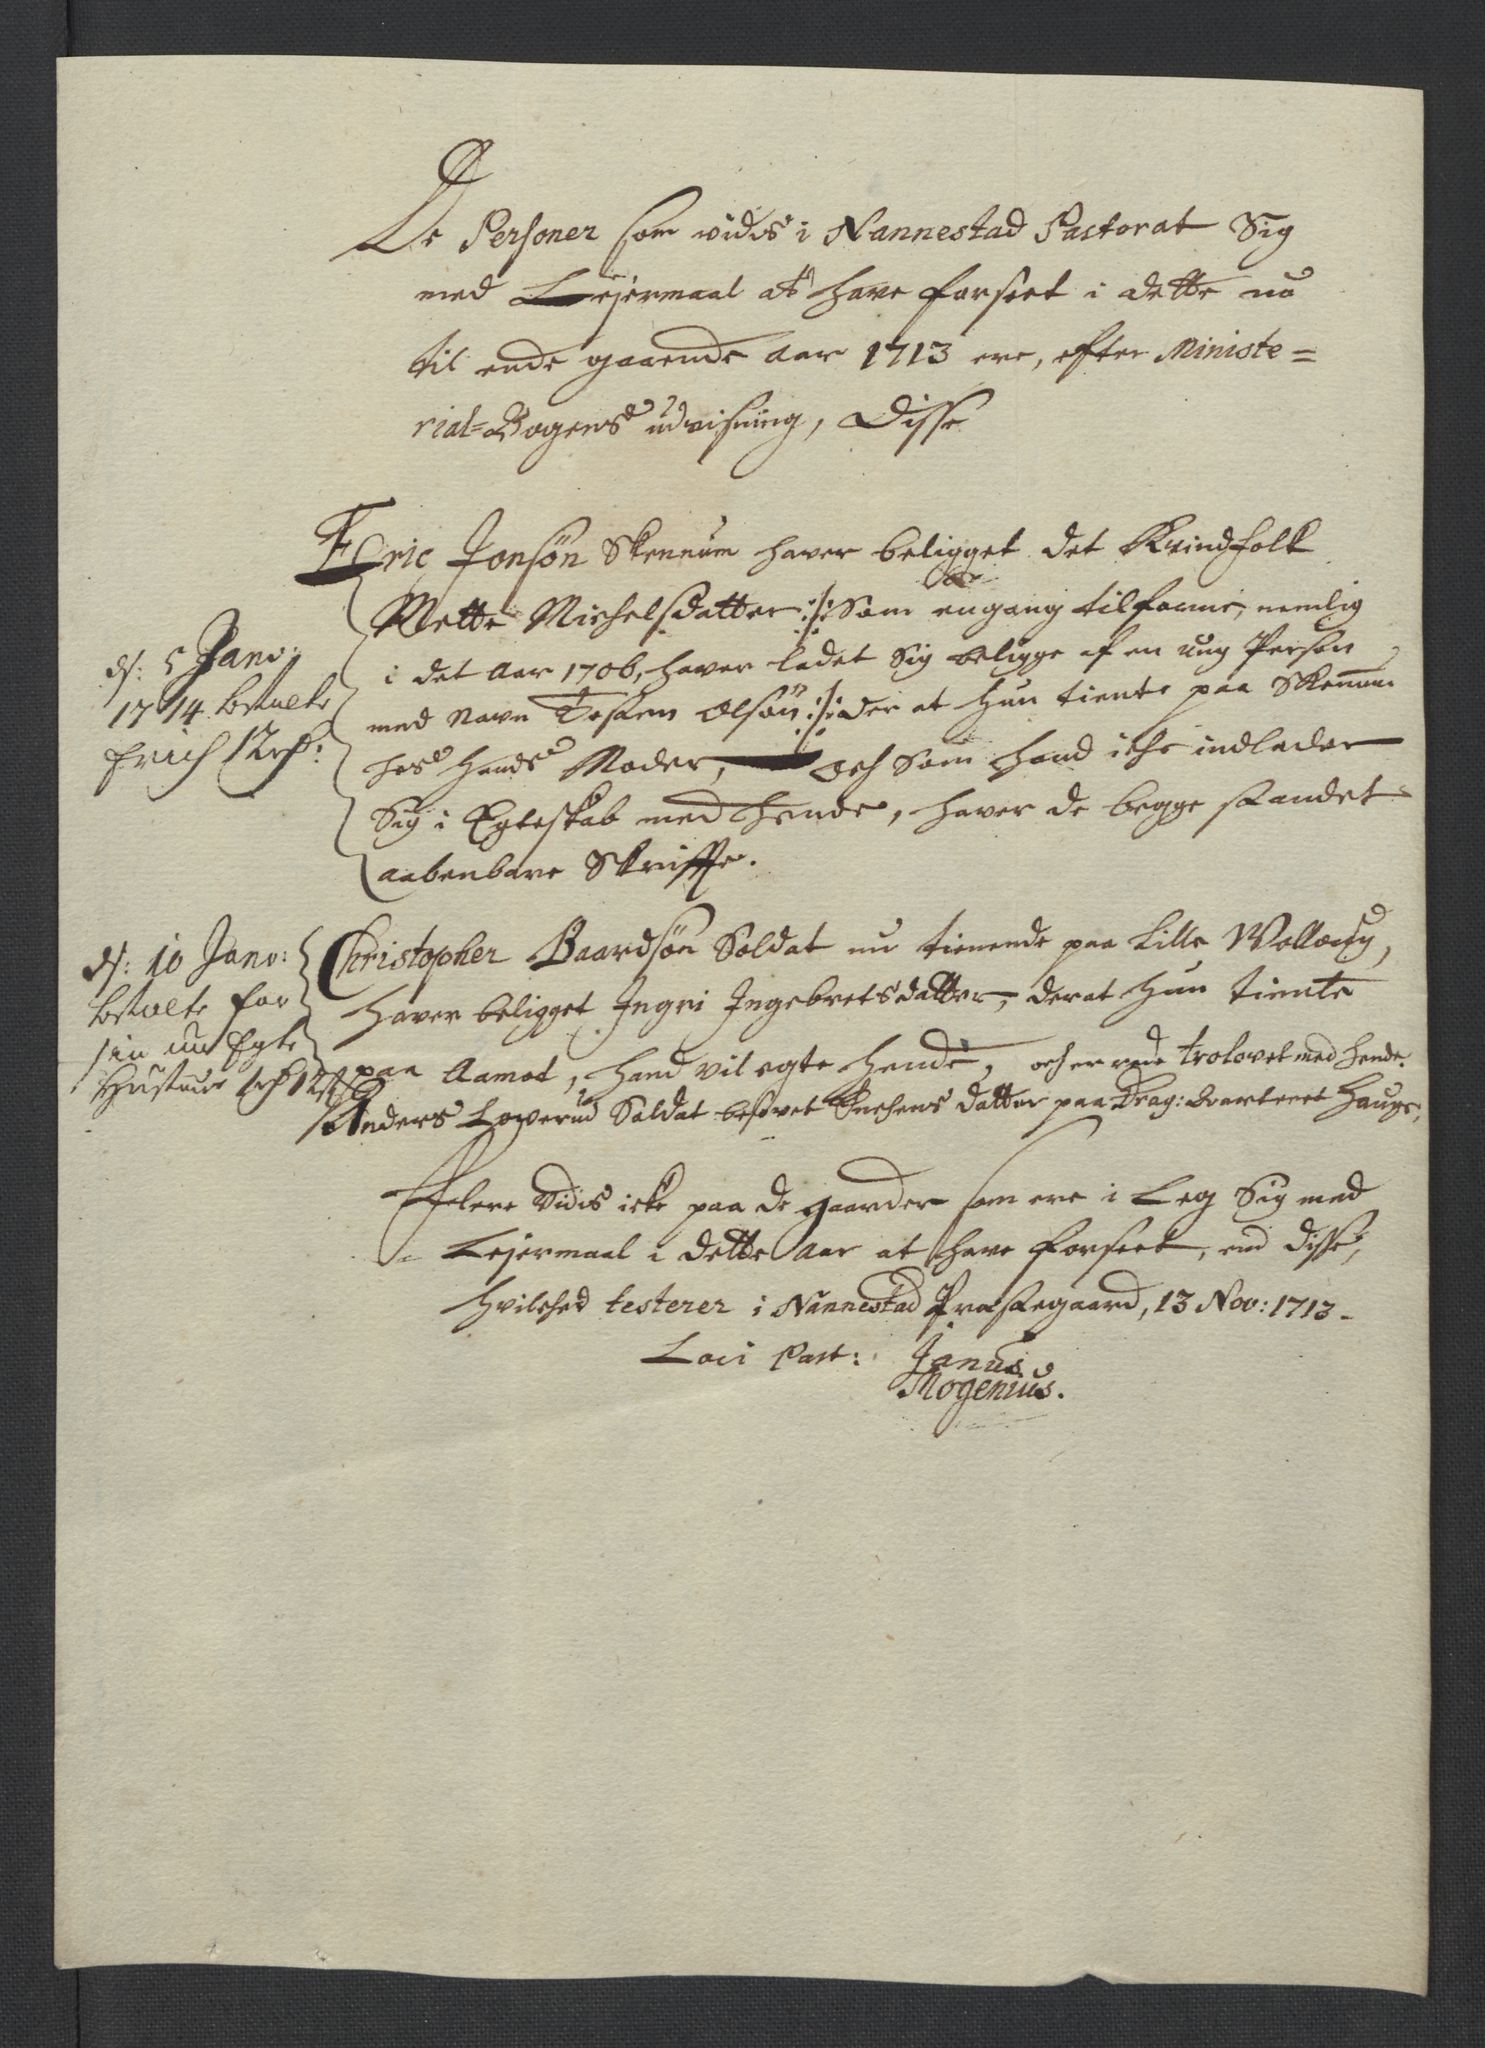 De Personer som vidis i Nannestad Pastorat Sig
med Lejermaal at have forseet i dette nu
til ende gaaende Aar 1713 ere, efter Ministe=
rial=Bogens udvisning, Disse
Eric Jonsøn Skennum haver beligget det Kvindfolk
Mette Michelsdatter :/: Som engang tilforne, nemlig
i det Aar 1706, haver ladet Sig beligge af en ung Person
med navn Olsøn :/: der at hun tiente paa Skennum
hos hands Moder, och Som hand iche indlader
Sig i Egteskab med hende, haver de begge standet
aabenbare Skrifte.
d: 5 Janv:
1714 betalte
Erich 12 rd:
Christopher Baardsøn Soldat nu tienende paa Lille
haver beligget Ingri Ingebretsdatter, derat hun tiente
paa Aamot, hand vil egte hende, och er trolovet med hende.
Anders Soldat besovet datter paa Drag: Qvarteret Haug
d: 10 Janv:
betalte for
sin nu Egte
Hustrue
Flere vidis icke paa de gaarder som ere i Leg Sig med
Lejermaal i dette Aar at have forseet, end disse,
hvilched testerer i Nannestad Præstegaard, 13 Nov: 1713.
Loci Past: Janus
Mogenius.